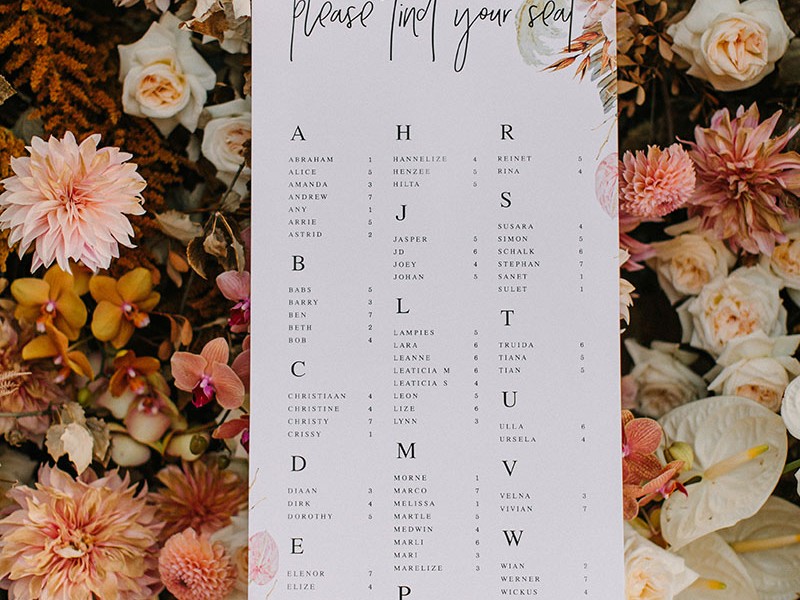 please find your seat
A
ABRAHAM 1
ALICE 5
AMANDA 3
ANDREW 7
ANY 1
ARRIE 5
ASTRID 2
B
BABS 5
BARRY 3
BEN 7
BETH 2
BOB 4
C
CHRISTIAAN 4
CHRISTINE 4
CHRISTY 7
CRISSY 1
D
DIAAN 3
DIRK 4
DOROTHY 5
E
ELENOR 7
ELIZE 4
H
HANNELIZE 4
HENZEE 5
HILTA 5
J
JASPER 5
JD 6
JOEY 4
JOHAN 5
L
LAMPIES 5
LARA 6
LEANNE 6
LEATICIA M 6
LEATICIA S 4
LEON 5
LIZE 6
LYNN 3
M
MORNE 1
MARCO 7
MELISSA 1
MARTLE 5
MEDWIN 4
MARLI 6
MARI 3
MARELIZE 3
P
R
REINET 5
RINA 4
S
SUSARA 4
SIMON 5
SCHALK 6
STEPHAN 7
SANET 1
SULET 1
T
TRUIDA 6
TIANA 5
TIAN 5
U
ULLA 6
URSELA 4
V
VELNA 3
VIVIAN 7
W
WIAN 2
WERNER 7
WICKUS 4